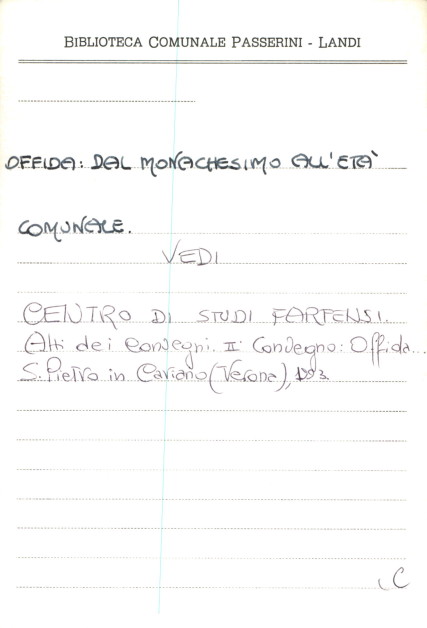 BIBLIOTECA COMUNALE PASSERINI - LANDI
OFFIDA: DAL MONACHESIMO ALL'ETÀ
COMUNALE.
VEDI
CENTRO DI STUDI FARFENSI.
Atti dei Convegni. II° Convegno: Offida...
S. Pietro in Cariano (Verona), 1993
C